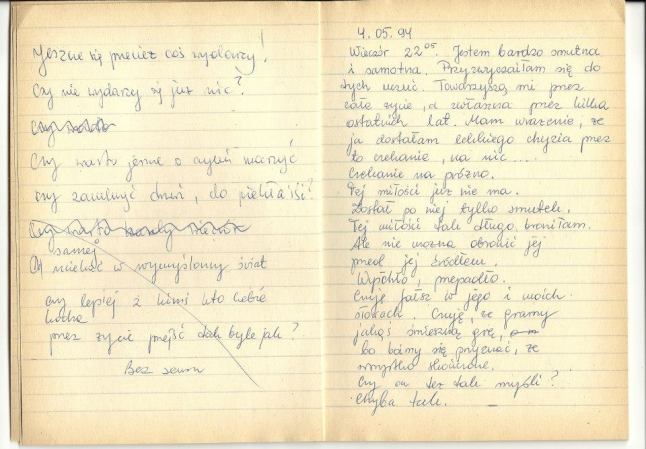 Jeszcze się przecież coś wydarzy!
Czy nie wydarzy się już nic?
Czy warto
Czy warto jeszcze o czymś marzyć
czy zamknąć drzwi, do piekła iść?
Czy warto
samej
w wymyślony świat
czy lepiej z kimś kto ciebie
kocha
przez życie przejść tak byle jak?
Bez sensu
4.05.94
Wieczór 22⁰⁵. Jestem bardzo smutna
i samotna. Przyzwyczaiłam się do
tych uczuć. Towarzyszą mi przez
całe życie, a zwłaszcza przez kilka
ostatnich lat. Mam wrażenie, że
ja dostałam lekkiego chyzia przez
to czekanie, na nic....
Czekanie na próżno.
Tej miłości już nie ma.
Został po niej tylko smutek.
Tej miłości tak długo broniłam.
Ale nie można obronić jej
przed jej źródłem.
Wypękło, przepadło.
Czuję fałsz w jego i moich
słowach. Czuję, że gramy
jakąś śmieszną grę,
bo boimy się przyznać, że
wszystko skończone.
Czy on też tak myśli?
Chyba tak.